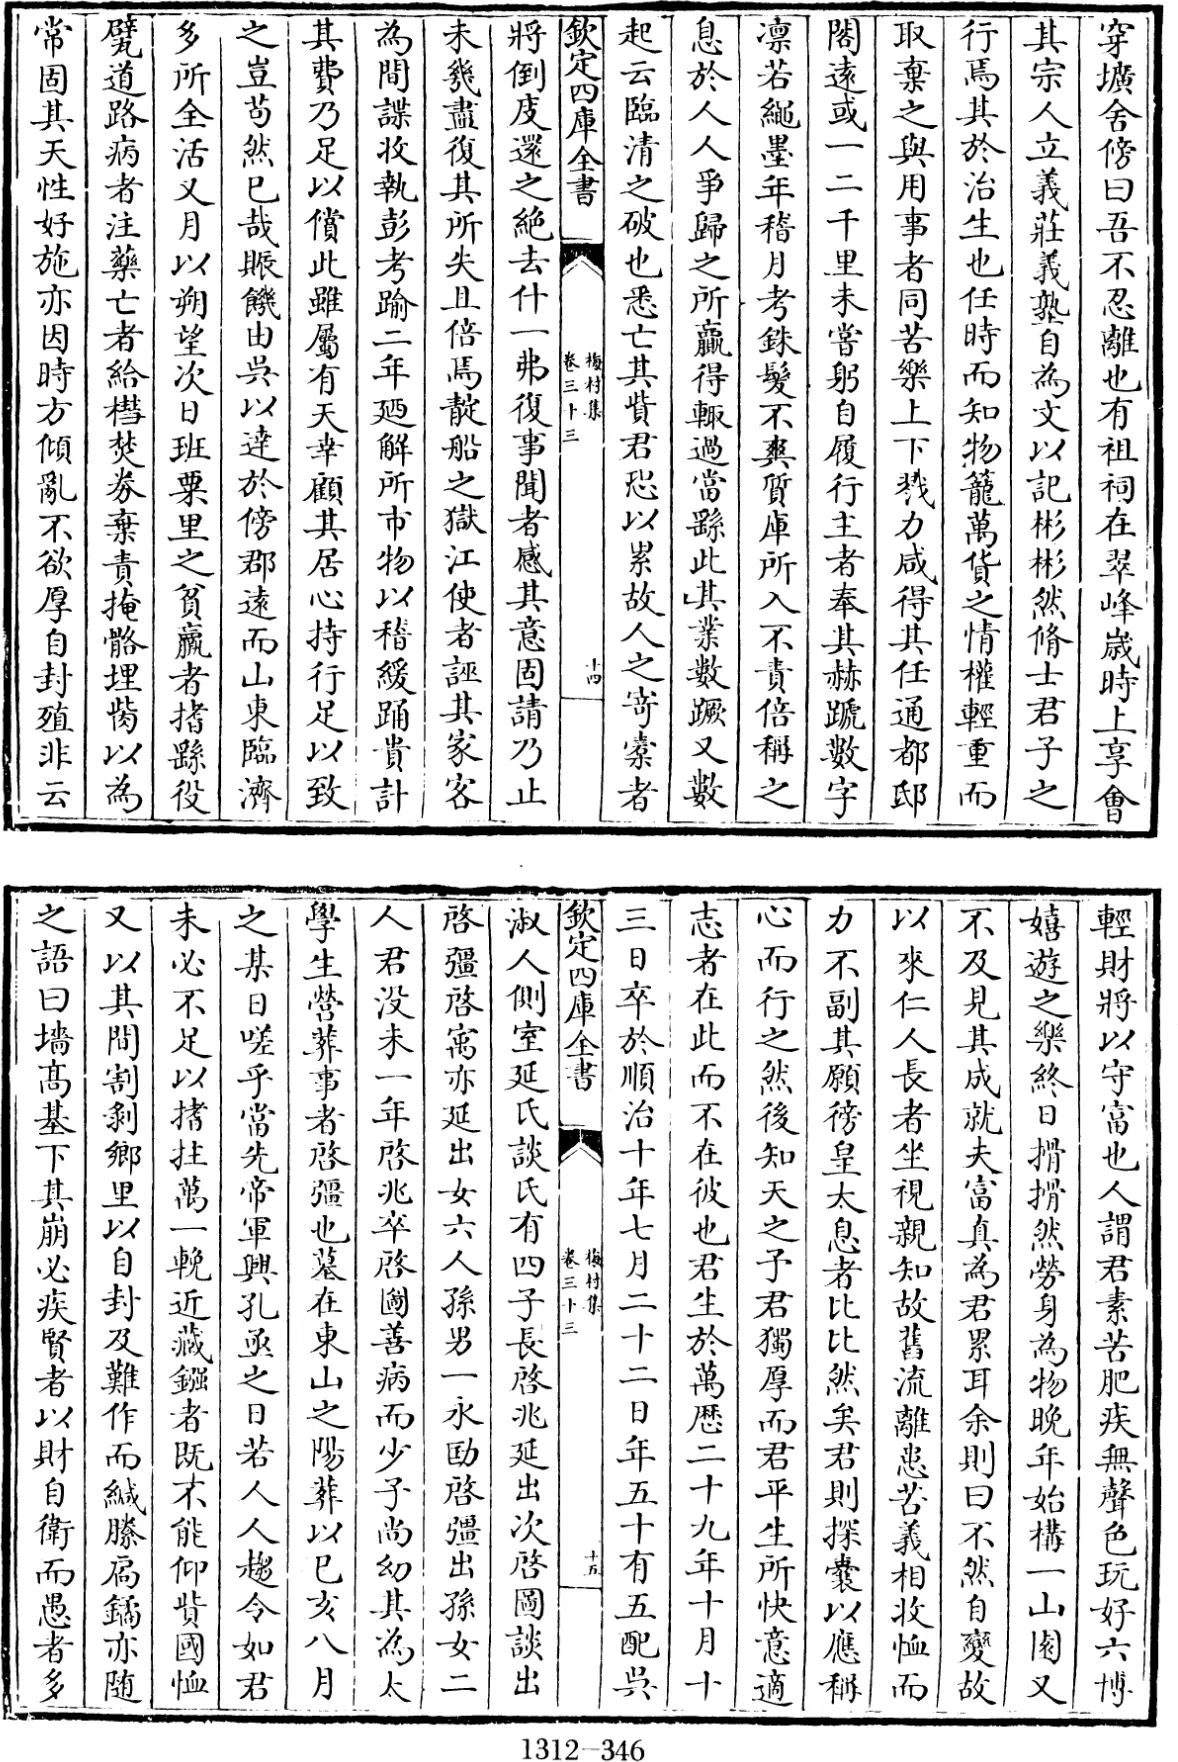 穿壙舍傍曰吾不忍離也有祖祠在翠峰歲時上享會
其宗人立義莊義塾自為文以記彬彬然脩士君子之
行焉其於治生也任時而知物籠萬貨之情權輕重而
取棄之與用事者同苦樂上下戮力咸得其任通都邸
閣遠或一二千里未嘗躬自履行主者奉其赫蹏數字
凛若繩墨年稽月考銖髮不爽質庫所入不責倍稱之
息於人人爭歸之所贏得輙過當繇此其業數蹶又數
起云臨清之破也悉亡其貲君恐以累故人之寄橐者
欽定四庫全書
梅村集
卷三十三
十四
將倒庋還之絶去什一弗復事聞者感其意固請乃止
未幾盡復其所失且倍焉靛船之獄江使者誣其家客
為間諜收執彭考踰二年廼解所市物以稽緩踊貴計
其費乃足以償此雖屬有天幸顧其居心持行足以致
之豈苟然已哉賑饑由吳以達於傍郡遠而山東臨濟
多所全活又月以朔望次日班粟里之貧羸者揩繇役
甓道路病者注藥亡者給槥焚券棄責掩骼埋胔以為
常固其天性好施亦因時方傾亂不欲厚自封殖非云
輕財將以守富也人謂君素苦肥疾無聲色玩好六博
嬉遊之樂終日搰搰然勞身為物晚年始構一山園又
不及見其成就夫富真為君累耳余則曰不然自變故
以來仁人長者坐視親知故舊流離患苦義相收恤而
力不副其願徬皇太息者比比然矣君則探囊以應稱
心而行之然後知天之予君獨厚而君平生所快意適
志者在此而不在彼也君生於萬歷二十九年十月十
三日卒於順治十年七月二十二日年五十有五配吳
欽定四庫全書
梅村集
卷三十三
十五
淑人側室延氏談氏有四子長啓兆延出次啓圖談出
啓彊啓寓亦延出女六人孫男一永劻啓彊出孫女二
人君没未一年啓兆卒啓圖善病而少子尚幼其為太
學生營葬事者啓彊也墓在東山之陽葬以已亥八月
之某日嗟乎當先帝軍興孔亟之日若人人趨令如君
未必不足以揩拄萬一輓近藏鏹者既不能仰貲國恤
又以其間割剥鄉里以自封及難作而緘縢扃鐍亦隨
之語曰墻髙基下其崩必疾賢者以財自衛而愚者多
1312—346